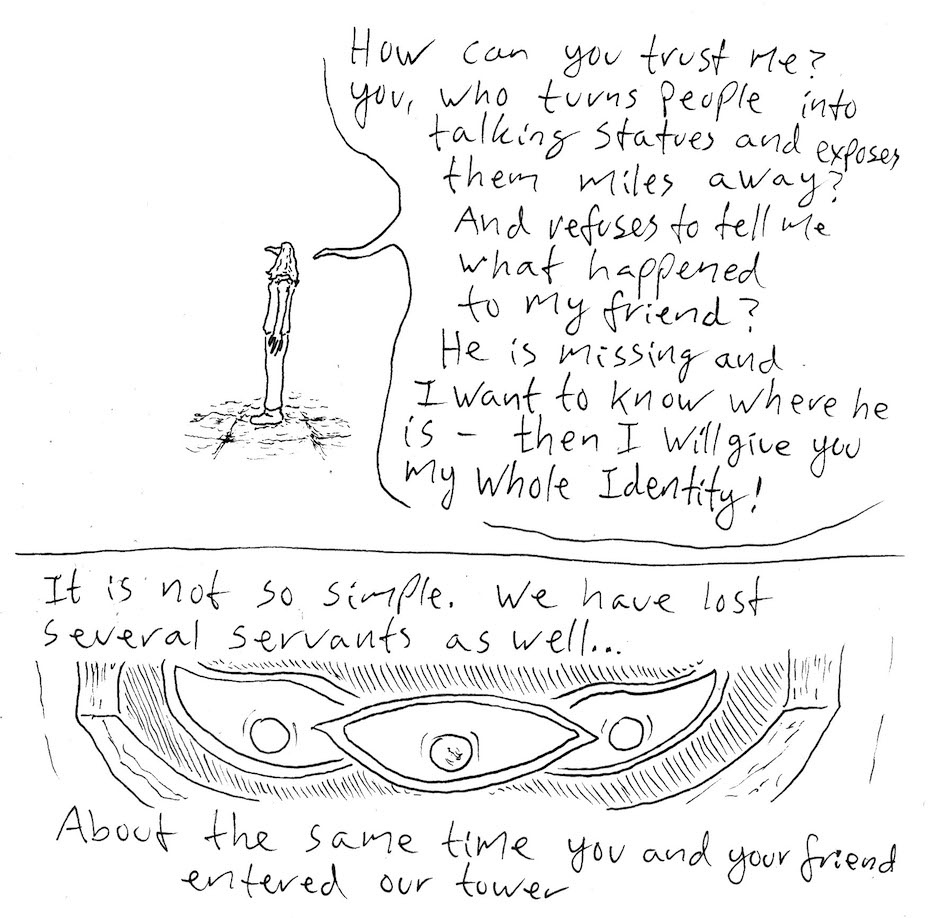 How can you trust me?
you, who turns people into
talking statues and exposes
them miles away?
And refuses to tell me
what happened
to my friend?
He is missing and
I want to know where he
is - then I will give you
my whole Identity!
It is not so simple. We have lost
several servants as well...
About the same time you and your friend
entered our tower